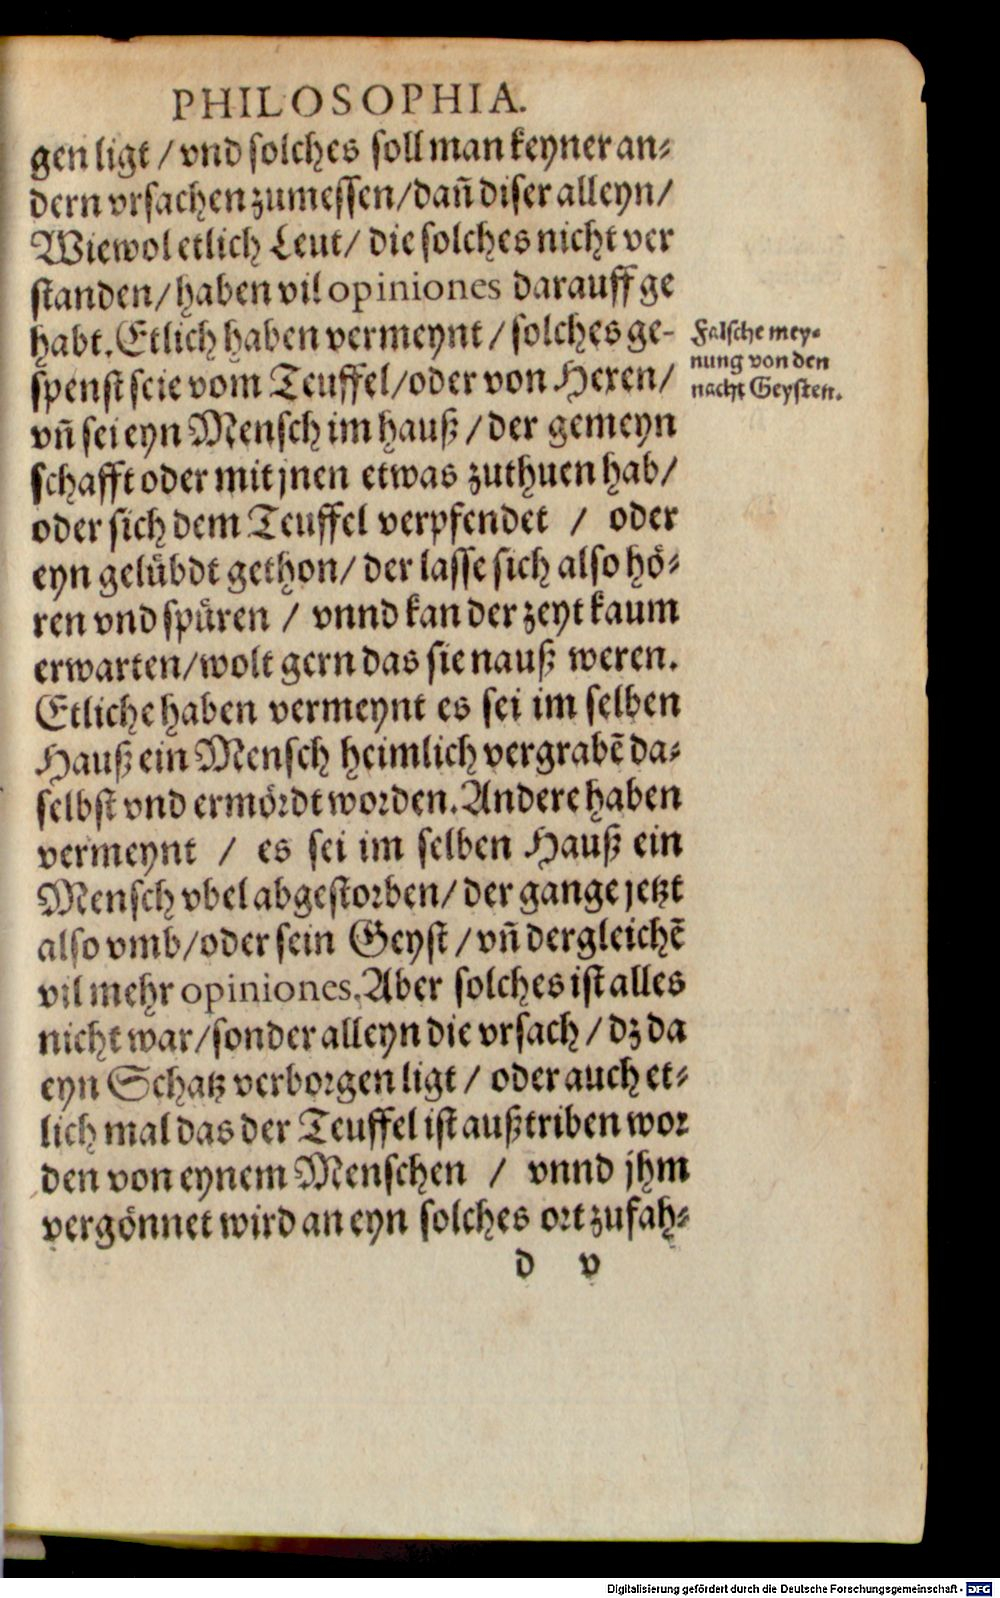 PHILOSOPHIA.
gen ligt / vnd solches soll man keyner an⸗
dern vrsachen zumessen / dañ diser alleyn /
Wiewol etlich Leut / die solches nicht ver
standen / haben vil opiniones darauff ge
habt. Etlich haben vermeynt / solches ge-
spenst seie vom Teuffel / oder von Hexen /
vñ sei eyn Mensch im hauß / der gemeyn
schafft oder mit jnen etwas zuthuen hab /
oder sich dem Teuffel verpfendet / oder
eyn gelübdt gethon / der lasse sich also hö⸗
ren vnd spüren / vnnd kan der zeyt kaum
erwarten / wolt gern das sie nauß weren.
Etliche haben vermeynt es sei im selben
Hauß ein Mensch heimlich vergrabẽ da⸗
selbst vnd ermördt worden. Andere haben
vermeynt / es sei im selben Hauß ein
Mensch vbel abgestorben / der gange jetzt
also vmb / oder sein Geyst / vñ dergleichẽ
vil mehr opiniones. Aber solches ist alles
nicht war / sonder alleyn die vrsach / dz da
eyn Schatz verborgen ligt / oder auch et⸗
lich mal das der Teuffel ist außtriben wor
den von eynem Menschen / vnnd jhm
vergönnet wird an eyn solches ort zufah⸗
d v
Falsche mey⸗
nung von den
nacht Geysten.
Digitalisierung gefördert durch die Deutsche Forschungsgemeinschaft - DFG